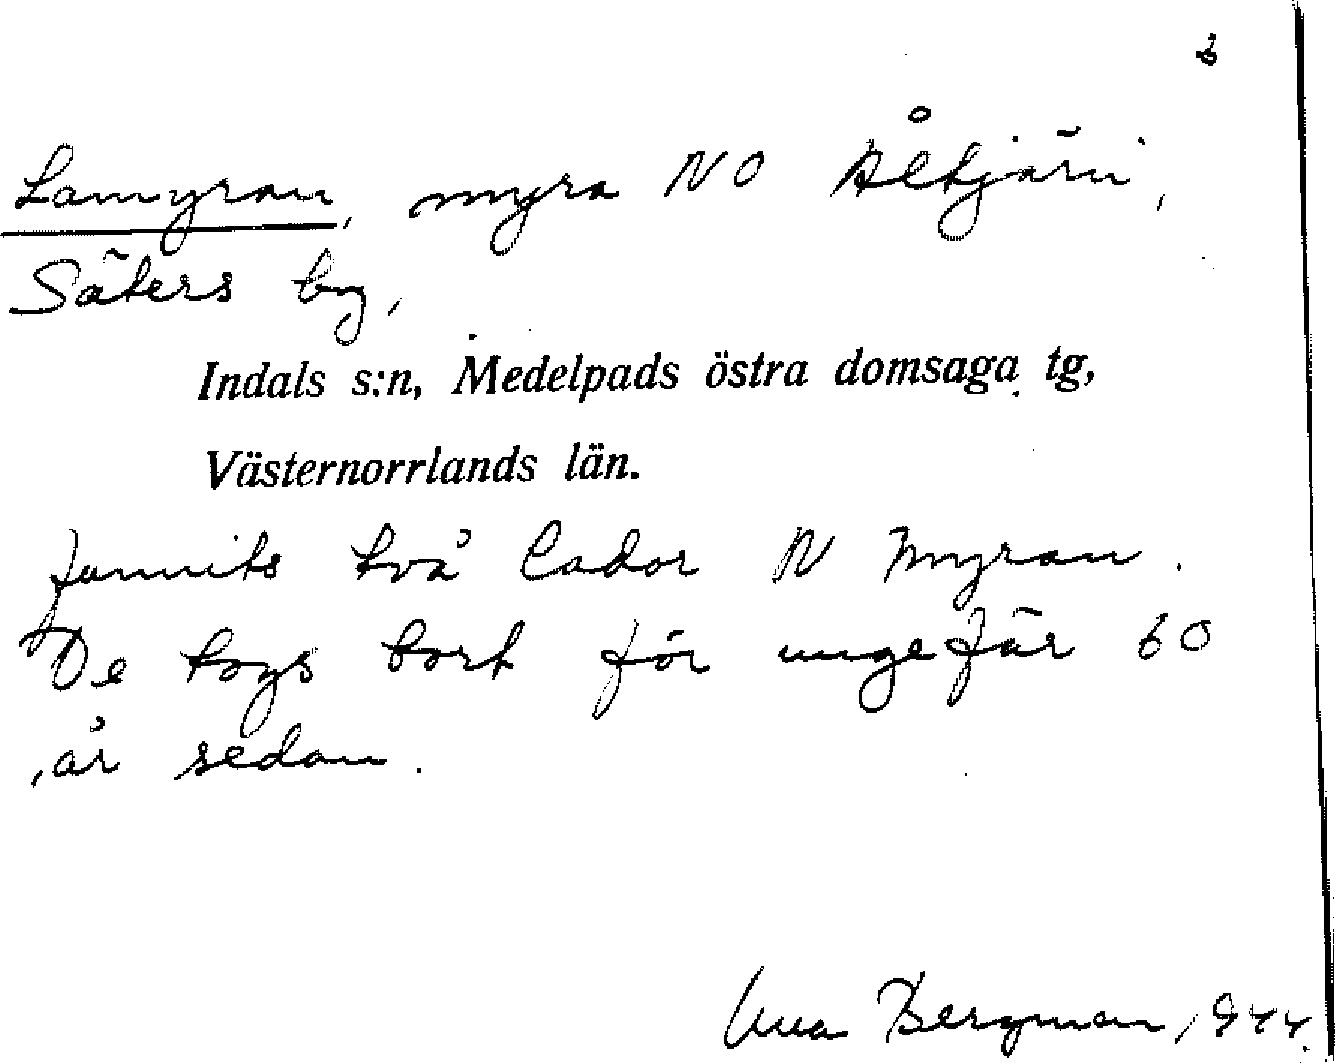 6
Lamyran, myra NO Åltjärn,
Säters by,
Indals s:n, Medelpads östra domsaga tg,
Västernorrlands län.
Funnits två lador N Myran.
De togs bort för ungefär 60
år sedan.
Bergman, 1944.